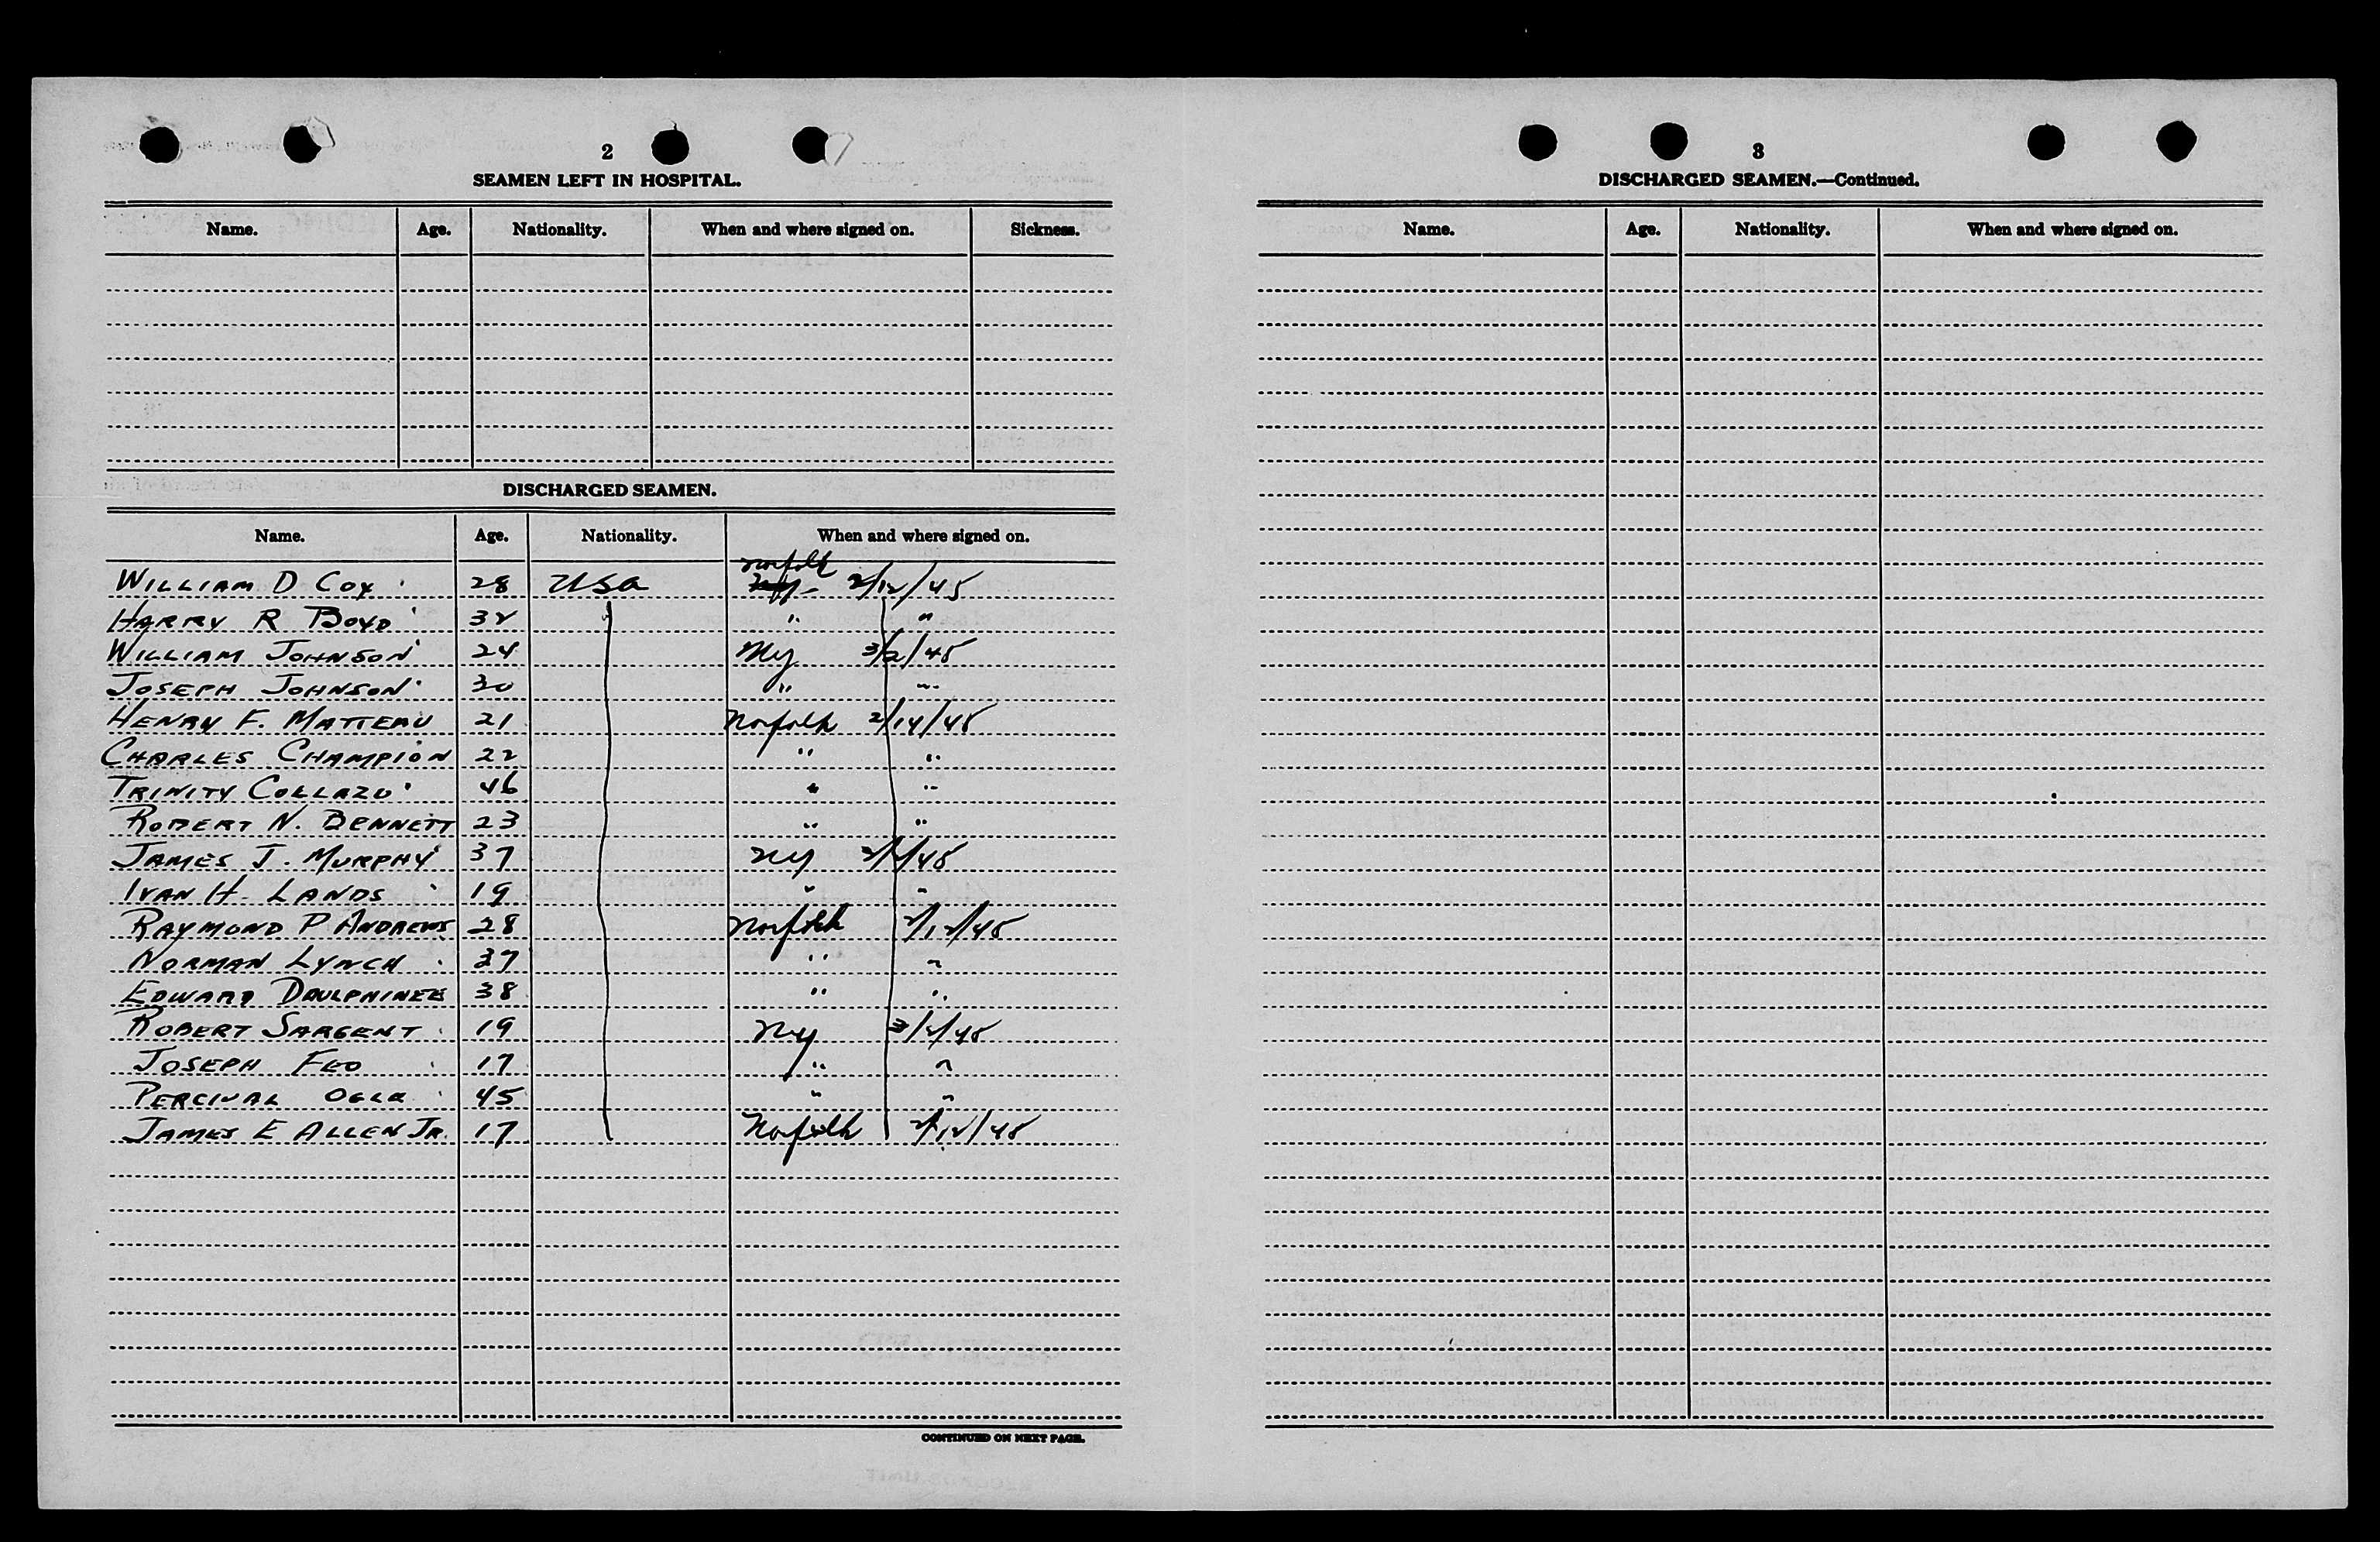 2
SEAMEN LEFT IN HOSPITAL.
Name. Age. Nationality. When and where signed on. Sickness.
DISCHARGED SEAMEN.
Name. Age. Nationality. When and where signed on.
WILLIAM D COX 28 USA Norfolk 2/12/45
HARRY R BOYD 32 " "
WILLIAM JOHNSON 24 NY 3/2/45
JOSEPH JOHNSON 30 " "
HENRY F. MATTEAU 21 Norfolk 2/14/45
CHARLES CHAMPION 22 " "
TRINITY COLLAZO 46 " "
ROBERT N. BENNETT 23 " "
JAMES J. MURPHY 37 NY
IVAN H. LANDS 19 " "
RAYMOND P ANDREWS 28 Norfolk 2/12/45
NORMAN LYNCH 37 " "
EDWARD DAULPHINEE 38 " "
ROBERT SARGENT 19 NY 3/2/45
JOSEPH FEO 17 " "
PERCIVAL 45 " "
JAMES E ALLEN JR. 17 Norfolk 2/12/45
CONTINUED ON NEXT PAGE.
3
DISCHARGED SEAMEN.—Continued.
Name. Age. Nationality. When and where signed on.